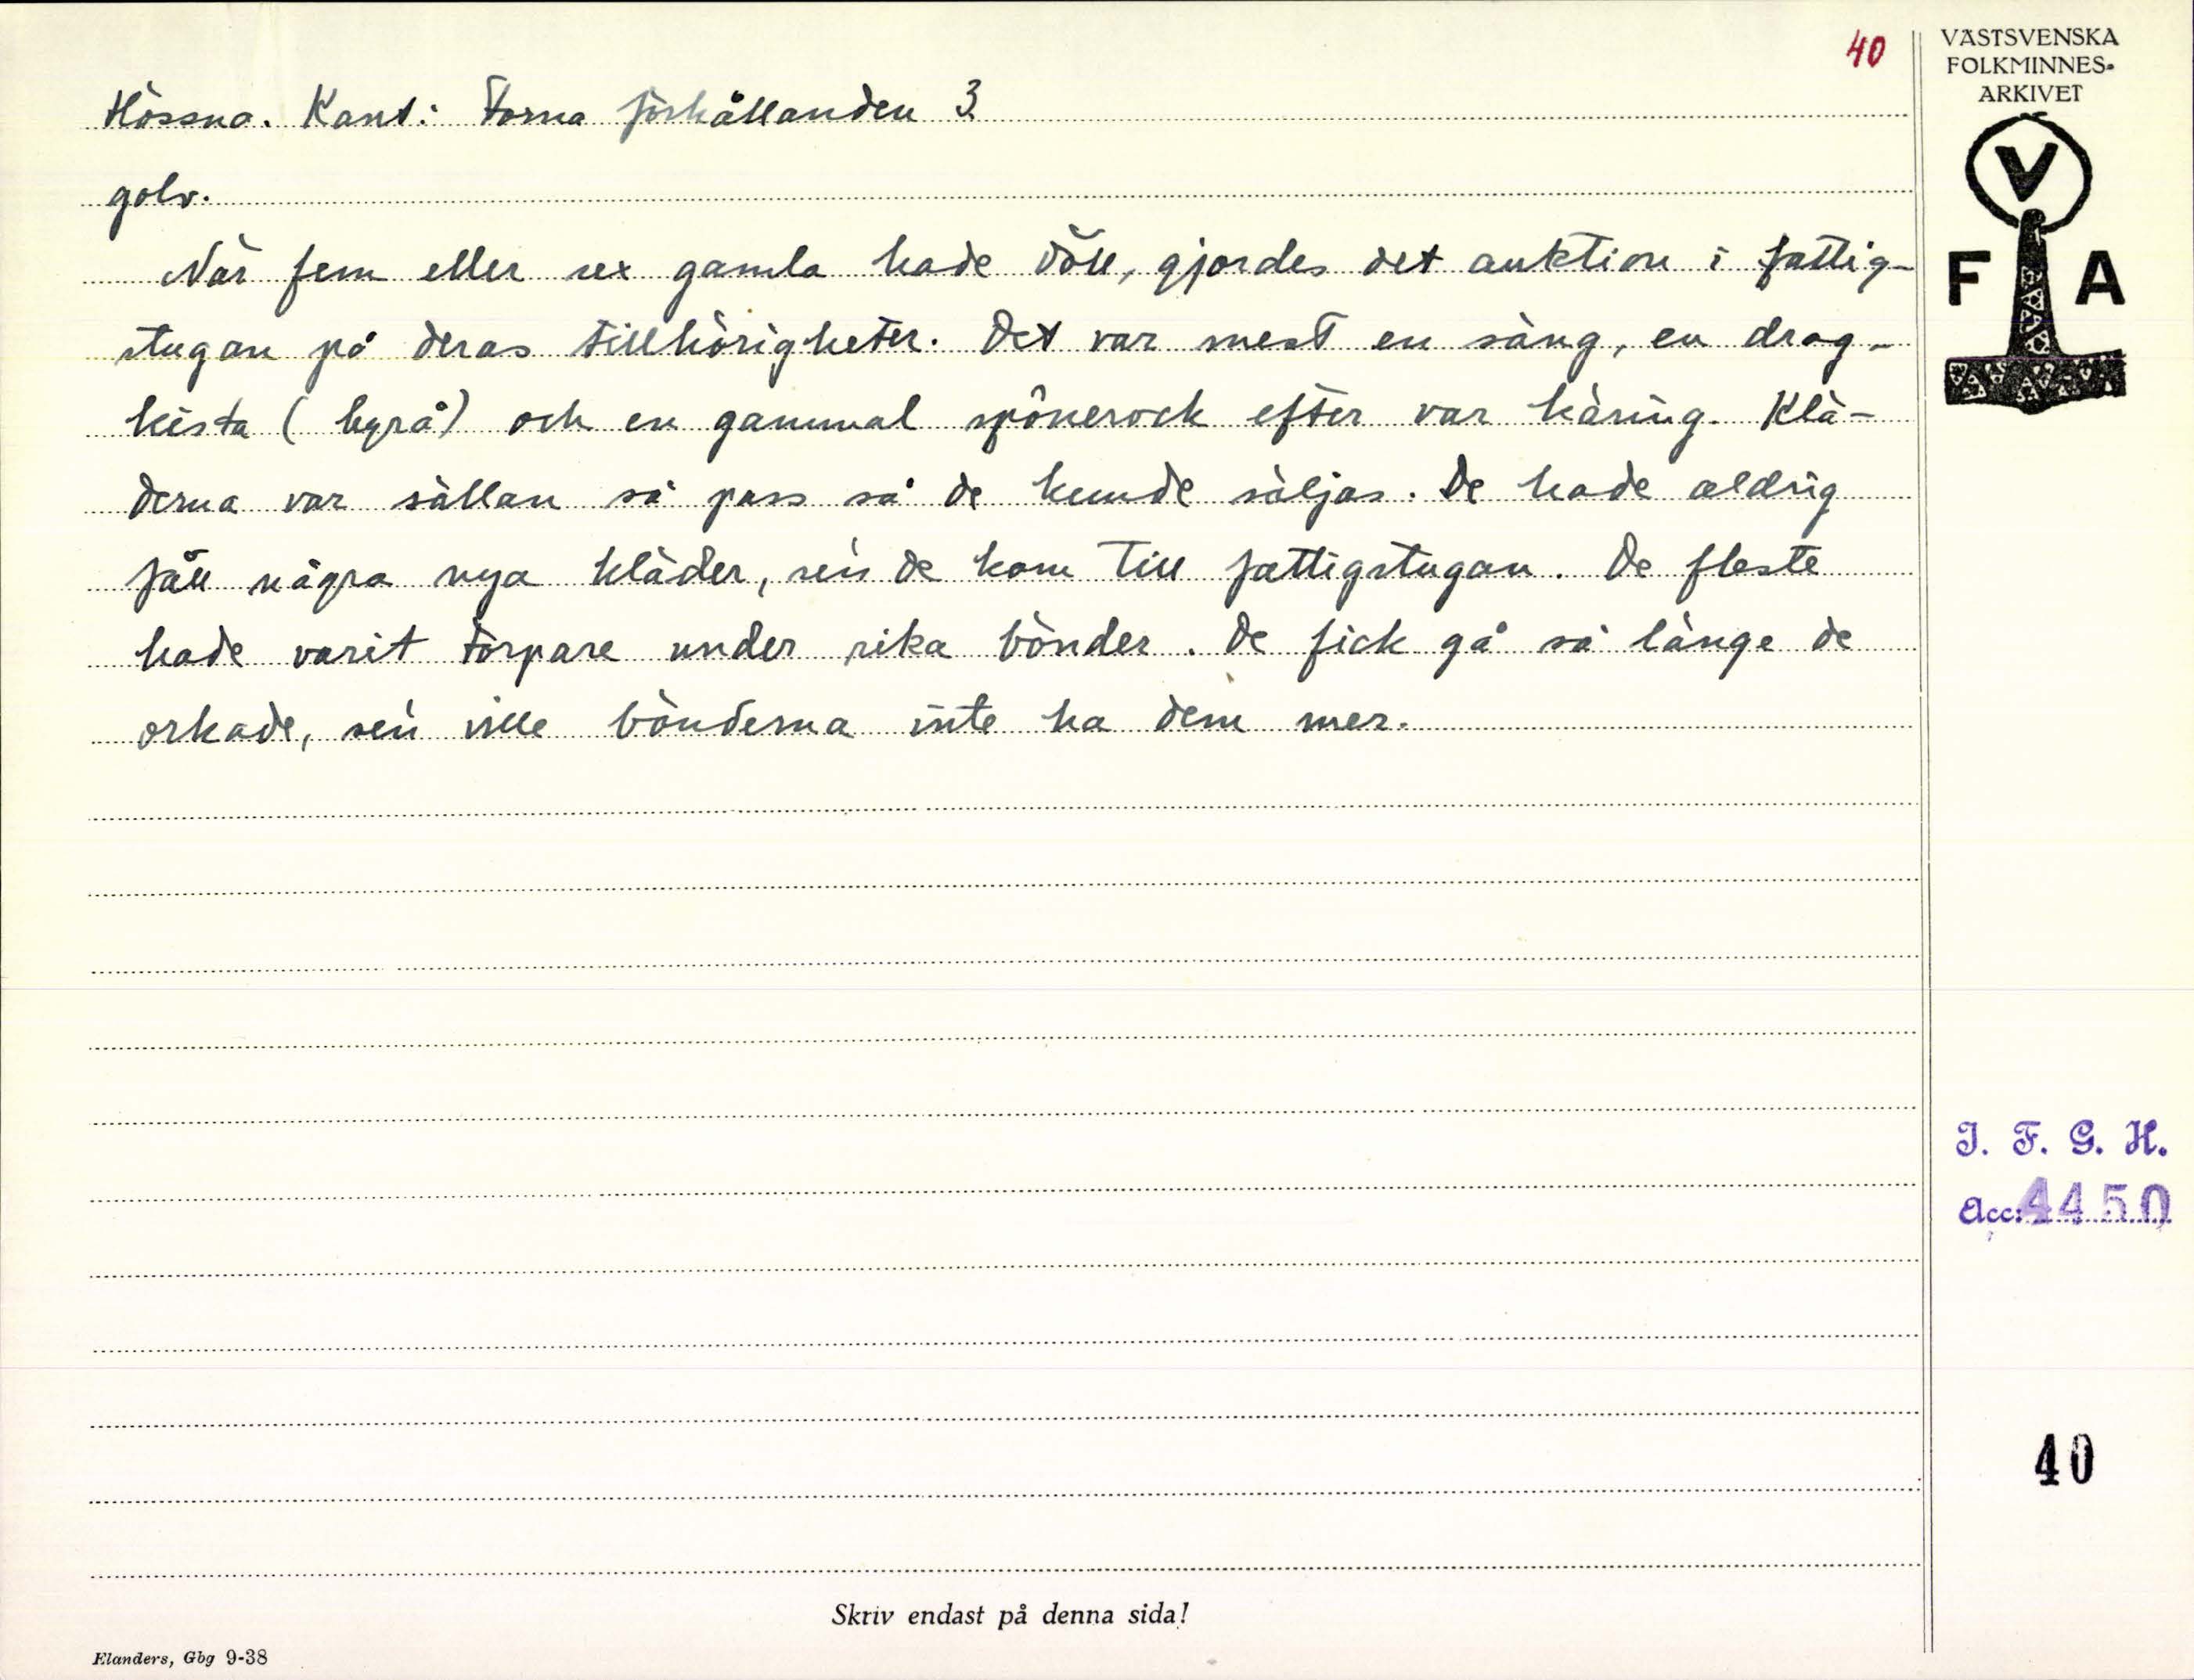 40
Hössna. Kant: Forna förhållanden 3
golv.
När fem eller sex gamla hade dött, gjordes det auktion i fattig-
stugan på deras tillhörigheter. Det var mest en säng, en drag-
kista (byrå) och en gammal spönerock efter var käring. Klä-
derna var sällan så pass så de kunde säljas. De hade aldrig
fått några nya kläder, sen de kom till fattigstugan. De fleste
hade varit torpare under rika bönder. De fick gå så länge de
orkade, sen ville bönderna inte ha dem mer.
Skriv endast på denna sida!
Elanders, Gbg 9-38
VÄSTSVENSKA
FOLKMINNES-
ARKIVET
V
F A
I. F. G. H.
Acc: 4450
40